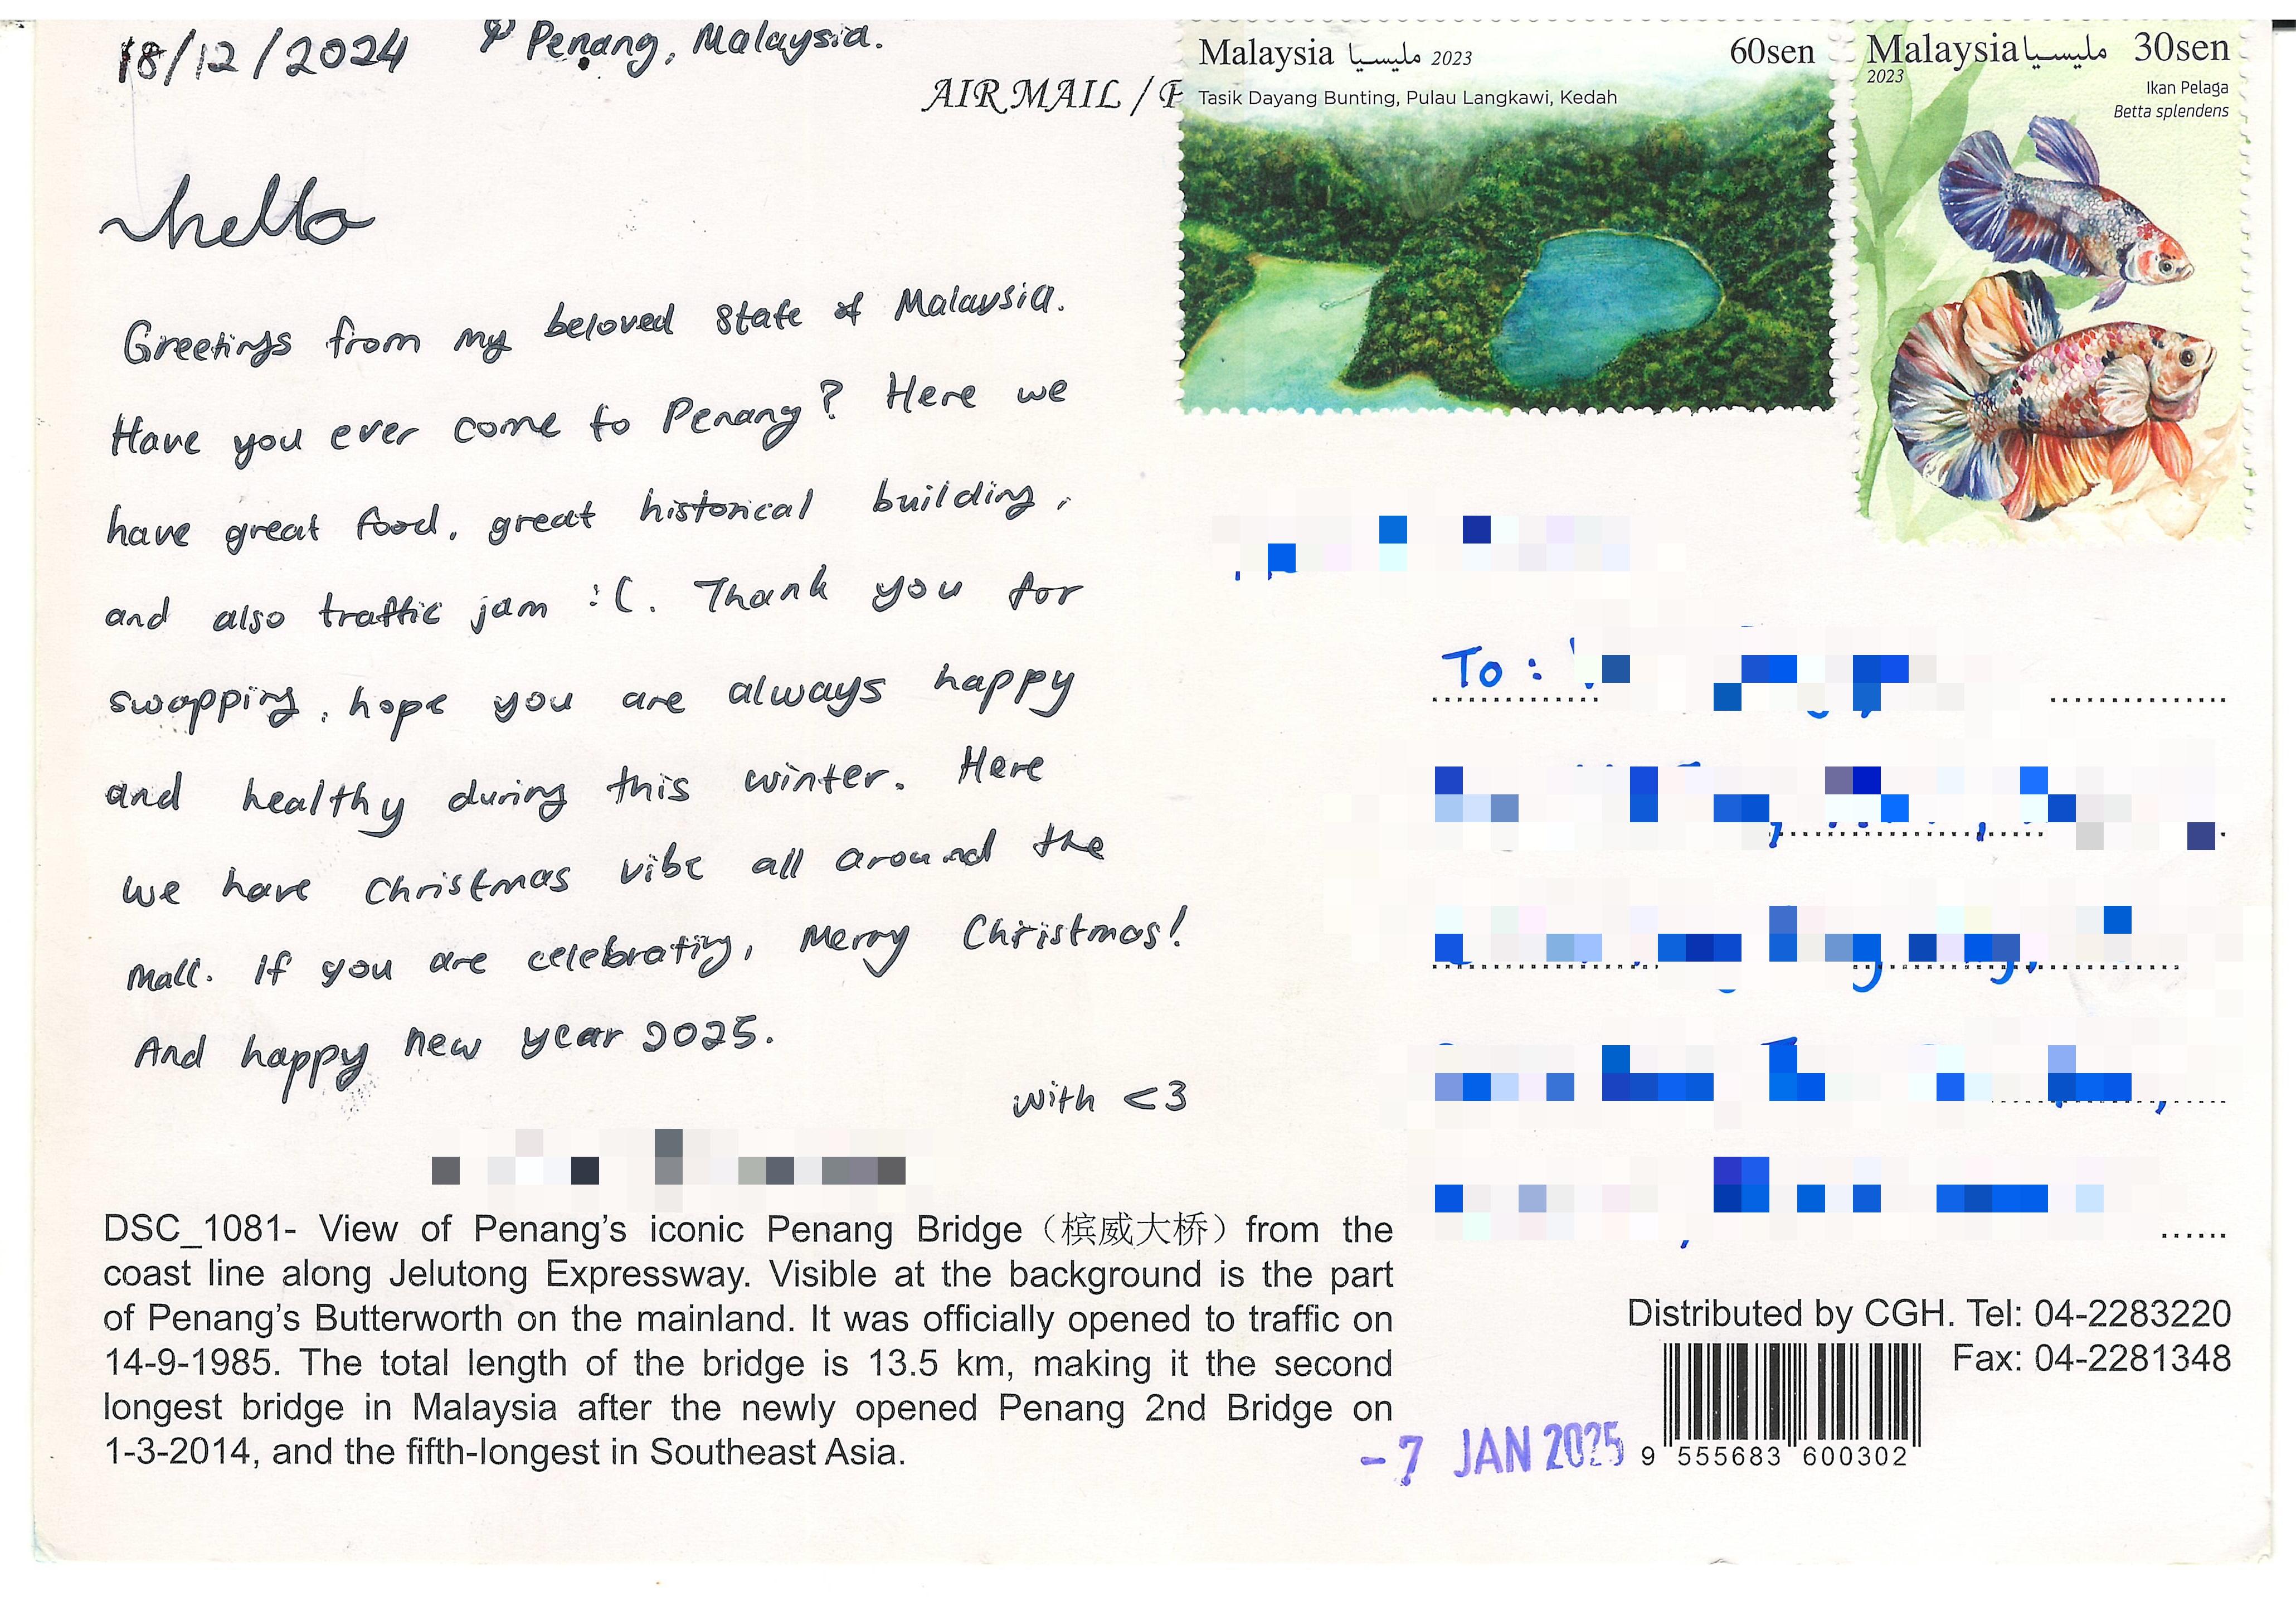 18/12/2024 Penang, Malaysia.
AIR MAIL /
Malaysia مليسيا 2023 60sen
Tasik Dayang Bunting, Pulau Langkawi, Kedah
Malaysia مليسيا 30sen
2023
Ikan Pelaga
Betta splendens
hello
Greetings from my beloved state of Malaysia.
Have you ever come to Penang? Here we
have great food, great historical building,
and also traffic jam :(. Thank you for
swapping, hope you are always happy
and healthy during this winter. Here
we have Christmas vibe all around the
Mall. If you are celebrating, Merry Christmas!
And happy new year 2025.
with <3
To :
DSC_1081- View of Penang's iconic Penang Bridge（槟威大桥）from the
coast line along Jelutong Expressway. Visible at the background is the part
of Penang's Butterworth on the mainland. It was officially opened to traffic on
14-9-1985. The total length of the bridge is 13.5 km, making it the second
longest bridge in Malaysia after the newly opened Penang 2nd Bridge on
1-3-2014, and the fifth-longest in Southeast Asia.
Distributed by CGH. Tel: 04-2283220
Fax: 04-2281348
-7 JAN 2025
9 555683 600302